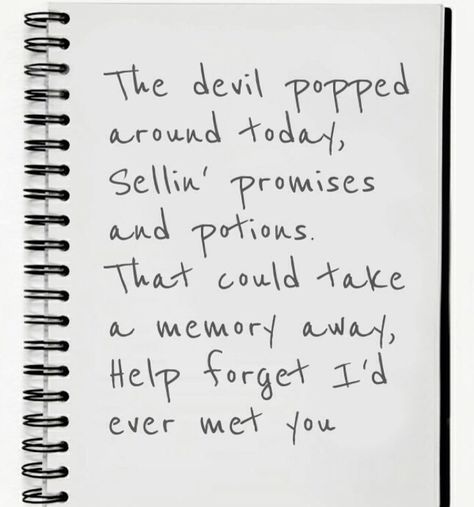 The devil popped
around today,
Sellin' promises
and potions.
That could take
a memory away,
Help forget I'd
ever met you